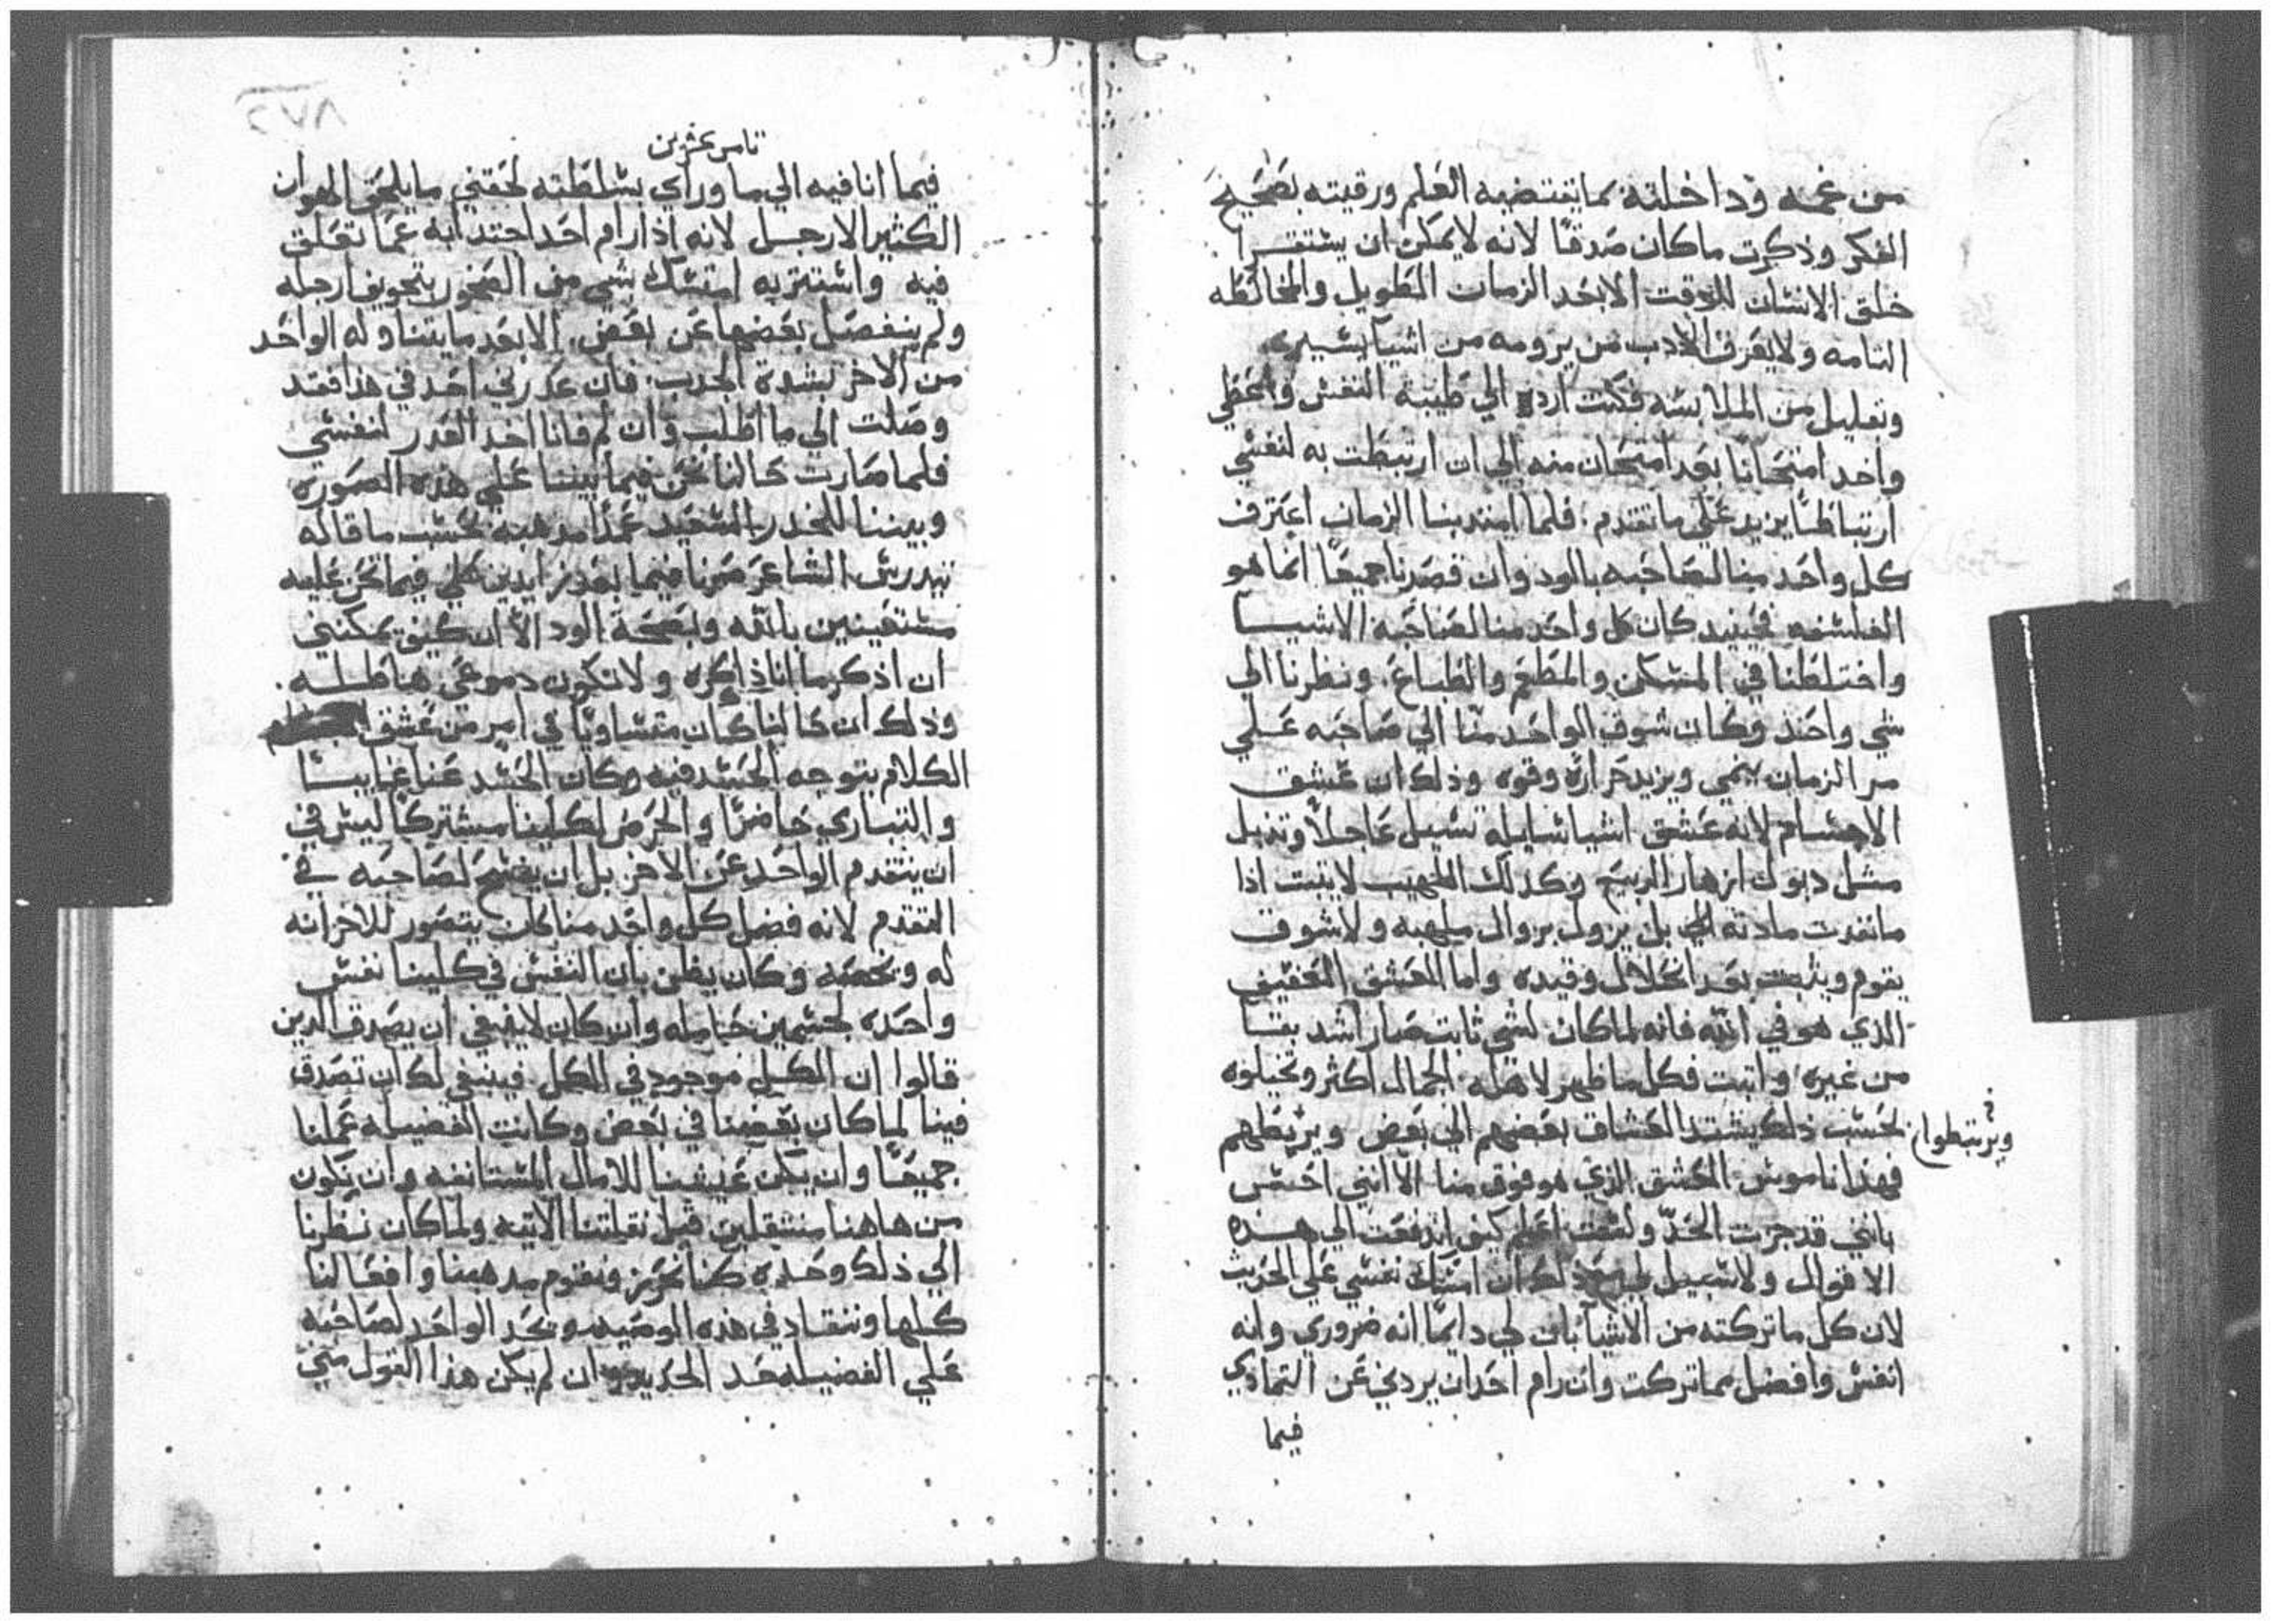 من غمه وداخلته بما يقتضيه العلم ورقيته بصحيح
الفكر وذكرت ما كان صدقًا لانه لا يمكن ان يستقرا
خلق الانسان للوقت الا بعد الزمان الطويل والمخالطه
التامه ولا يعرف الادب من يرومه من اشيا يسيره
وتعليل من الملابسه فكنت ارده الي طيبة النفس واعظي
واخد امتحانًا بعد امتحان منه الي ان ارتبطت به لنفسي
ارتباطًا يزيد علي ما تقدم. فلما امتد بنا الزمان اعترف
كل واحد منا لصاحبه بالود وان قصدنا جميعًا انما هو
الفلسفه فحينيد كان كل واحد منا لصاحبه الاشيا
واختلطنا في المسكن والمطعم والطباع. ونظرنا الي
شي واحد وكان شوق الواحد منا الي صاحبه علي
مر الزمان ينمي ويزيد حرارة وقوه وذلك ان عشق
الاجسام لانه عشق اشيا سايله تسيل عاجلاً وتدبل
مثل دبول ازهار الربيع وكدلك اللهيب لا يثبت اذا
ما نفدت مادته بل يزول بزوال ملهبه ولا شوق
يقوم ويثبت بعد انحلال وقيده واما العشق العفيف
الذي هو في الله فانه لما كان لشي ثابت صار اشد بقا
من غيره واثبت فكل ما ظهر لاهله الجمال اكثر وتخيلوه
لحسب ذلك يشتد العشاق بعضهم الي بعض ويربطهم
ويرتبطوا
فهذا ناموس العشق الذي هو فوق منا الا انني احس
بانني قد جزت الحد ولست اعلم كيف اندفعت الي هذه
الاقوال ولا سبيل لي مع ذلك ان امسك نفسي علي الحديث
لان كل ما تركته من الاشيا بان لي دايمًا انه ضروري وانه
انفس وافضل مما تركت وان رام احد ان يردني عن التمادي
فيما
ثامن عشرين
فيما انا فيه الي ما وراي بسلطته لحقني ما يلحق الهوان
الكثير الارجل لانه اذا رام احد اجتدابه عما تعلق
فيه واستتر به امتسك بشي من الصخور بتجويف ارجله
ولم ينفصل بعضها عن بعض. الا بعد ما يتناوله الواحد
من الاخر بشدة الجدب. فان عدرني احد في هذا فقد
وصلت الي ما اطلب وان لم فانا اخد العدر لنفسي
فلما صارت حالنا نحن فيما بيننا علي هذه الصوره
وبيننا للخدر السعيد عمدًا مدهبه لحسب ما قاله
بيدريس الشاعر صرنا فيما بعد زايدين علي فيما نحن عليه
مستعينين بالله وبصحة الود الا ان كيف يمكنني
ان اذكر ما انا ذاكره ولا تكون دموعي هاطله.
وذلك ان حالنا كان متساويًا في امر من عشق
الكلام يتوجه الحسد فيه وكان الحسد عنا غايبًا
والتباري حاضرًا والحرص لكلينا مشتركًا ليس في
ان يتقدم الواحد عن الاخر بل ان يفسح لصاحبه في
التقدم لانه فضل كل واحد منا كان يتصور للاخر انه
له ويخصه وكان يظن بان النفس في كلينا نفس
واحده لجسمين حامله وان كان لا ينبغي ان يصدق الدين
قالوا ان الكل موجود في الكل. فينبغي لك ان تصدق
فينا لما كان بعضنا في بعض وكانت الفضيله عملنا
جميعًا وان يكن عيشنا للامال المستانفه وان يكون
من هاهنا منتقلين قبل نقلتنا الاتيه ولما كان نظرنا
الي ذلك وحده كنا نحرر ونقوم مدهبنا وافعالنا
كلها وننقاد في هذه الوصيه ويحد الواحد لصاحبه
علي الفضيله حد الحديد وان لم يكن هذا القول مني